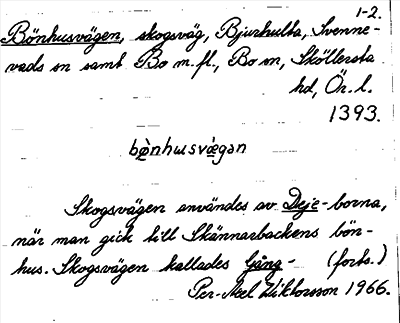 1-2.
Bönhusvägen, skogsväg, Bjurhulta, Svenne-
vads sn samt Bo m.fl., Bo sn, Sköllersta
hd, Ör. l.
1393.
bö̀nhusvä̀gan
Skogsvägen användes av Deje-borna,
när man gick till Skännarbackens bön-
hus. Skogsvägen kallades Gång- (forts.)
Per-Axel Wiktorsson 1966.